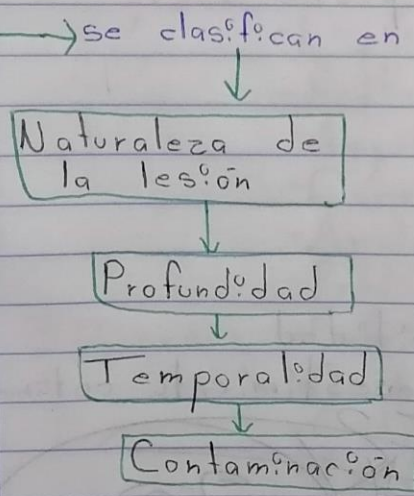 se clasifican en
Naturaleza de
la lesión
Profundidad
Temporalidad
Contaminación